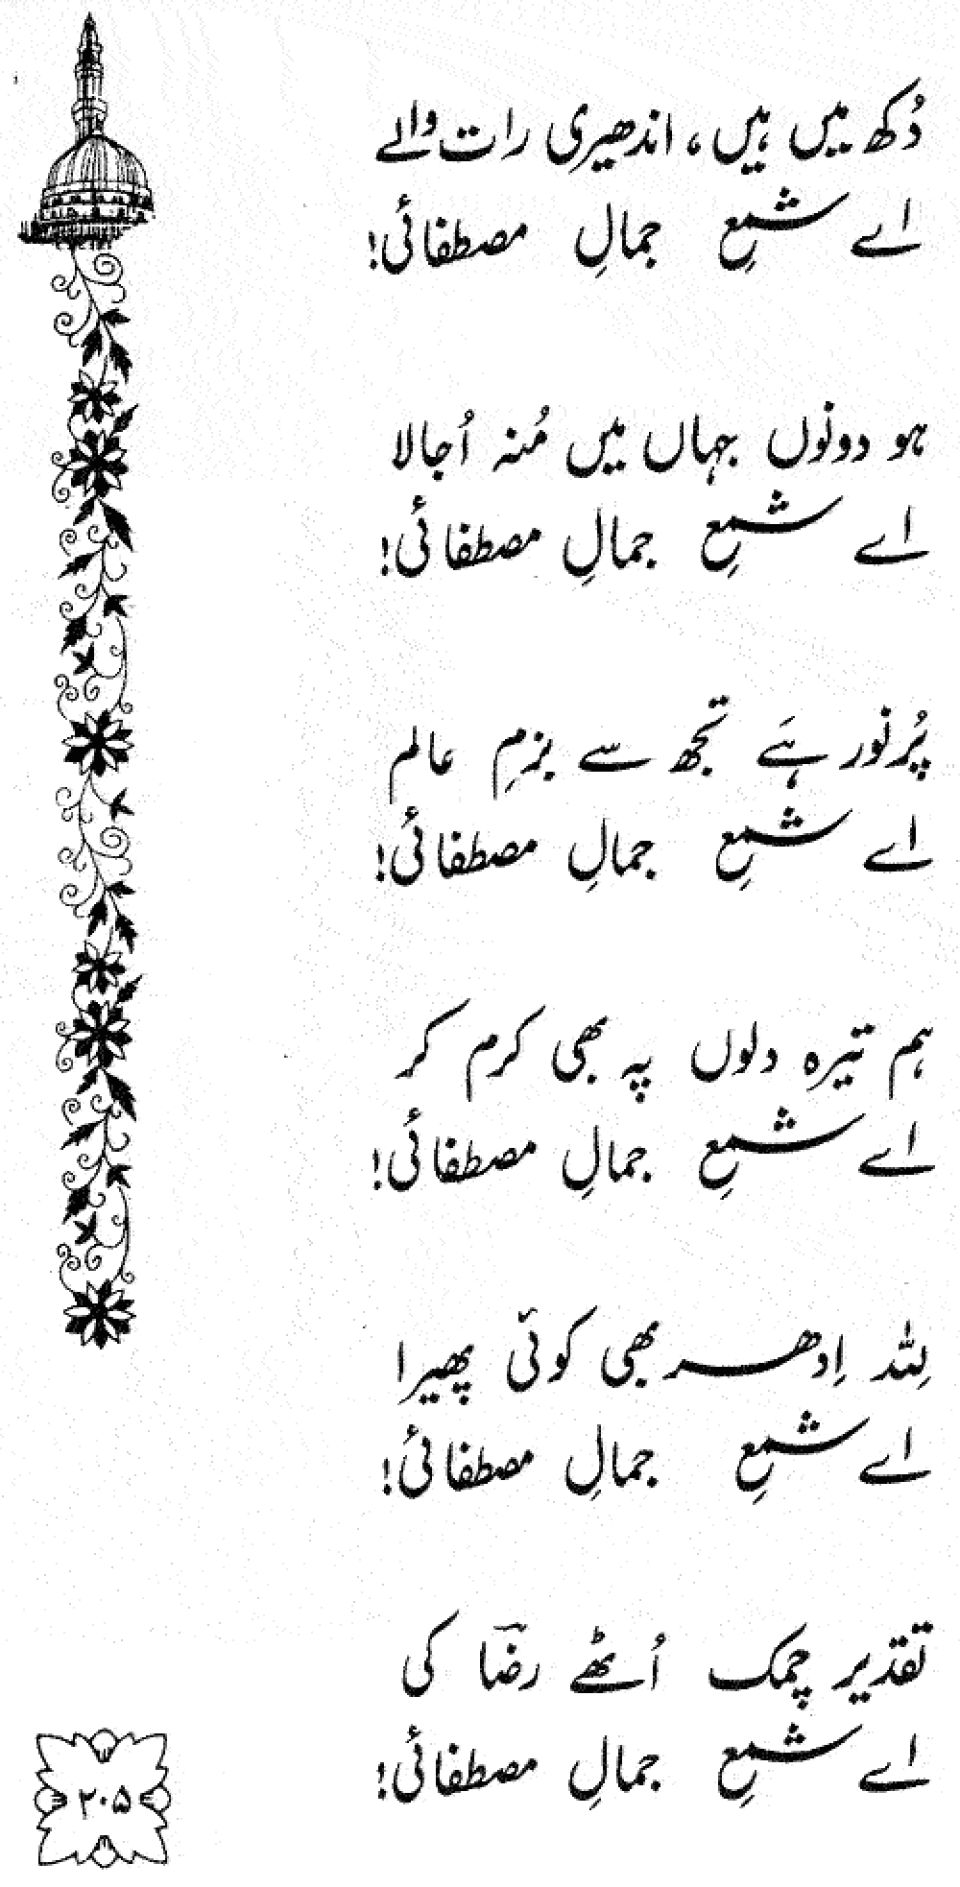 دُکھ میں ہیں، اندھیری رات والے
اے شمعِ جمالِ مصطفائی!
ہو دونوں جہاں میں مُنہ اُجالا
اے شمعِ جمالِ مصطفائی!
پُرنور ہَے تجھ سے بزمِ عالم
اے شمعِ جمالِ مصطفائی!
ہم تیرہ دلوں پہ بھی کرم کر
اے شمعِ جمالِ مصطفائی!
لِلّٰہ اِدھر بھی کوئی پھیرا
اے شمعِ جمالِ مصطفائی!
تقدیر چمک اُٹھے رضؔا کی
اے شمعِ جمالِ مصطفائی!
۲۰۵